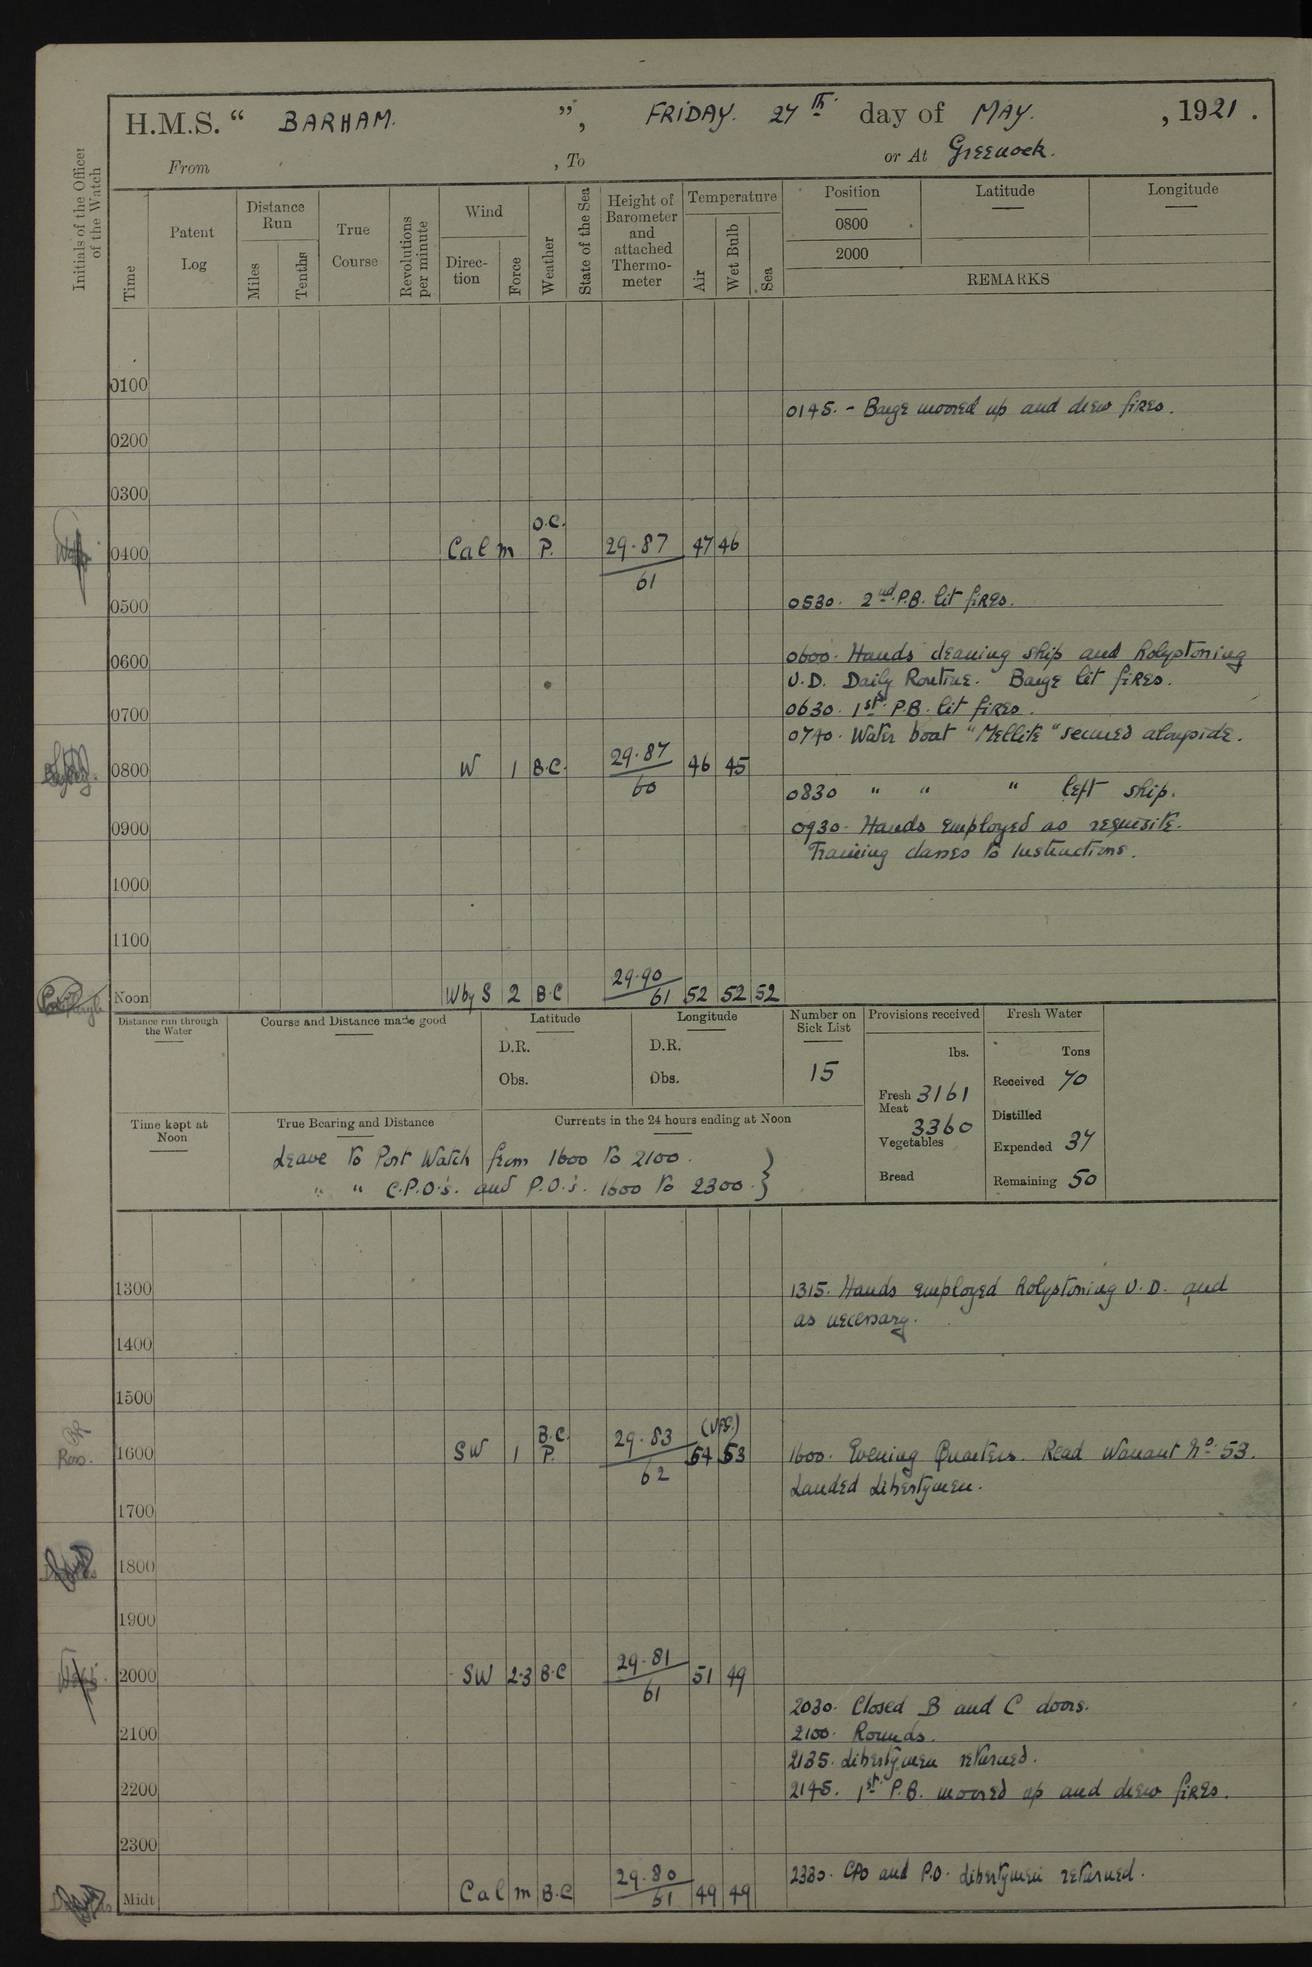 H.M.S. “ BARHAM. ”, FRIDAY. 27th. day of MAY. , 1921 .
From , To or At Greenock.
Initials of the Officer of the Watch
Time
Patent Log
Distance Run
Miles
Tenths
True Course
Revolutions per minute
Wind
Direc-tion
Force
Weather
State of the Sea
Height of Barometer and attached Thermo-meter
Temperature
Air
Wet Bulb
Sea
Position
0800
2000
Latitude
Longitude
REMARKS
0100
0145. - Barge moored up and drew fires.
0200
0300
0400 Calm O.C. P. 29.87 61 47 46
0500
0530. 2nd. P.B. lit fires.
0600
0600. Hands cleaning ship and holystoning
U.D. Daily Routine. Barge lit fires.
0630. 1st. P.B. lit fires.
0700
0740. Water boat "Mellite" secured alongside.
0800 W 1 B.C. 29.87 60 46 45
0830 " " " left ship.
0900
0930. Hands employed as requisite.
Training classes to Instructions.
1000
1100
Noon W by S 2 B.C 29.90 61 52 52 52
Distance run through the Water
Course and Distance made good
Latitude
D.R.
Obs.
Longitude
D.R.
Obs.
Number on Sick List
15
Provisions received
lbs.
Fresh Meat 3161
Vegetables 3360
Bread
Fresh Water
Tons
Received 70
Distilled
Expended 37
Remaining 50
Time kept at Noon
True Bearing and Distance
Currents in the 24 hours ending at Noon
Leave to Port Watch from 1600 to 2100.
" " C.P.O.'s. and P.O.'s. 1600 to 2300. }
1300
1315. Hands employed holystoning U.D. and
as necessary.
1400
1500
1600 SW 1 B.C. P. 29.83 62 54 53
1600. Evening Quarters. Read Warrant No. 53.
Landed libertymen.
1700
1800
1900
2000 SW 2.3 B.C 29.81 61 51 49
2030. Closed B and C doors.
2100
2100. Rounds.
2135. Libertymen returned.
2145. 1st. P.B. moored up and drew fires.
2200
2300
2330. CPO and P.O. libertymen returned.
Midt Calm B.C 29.80 61 49 49